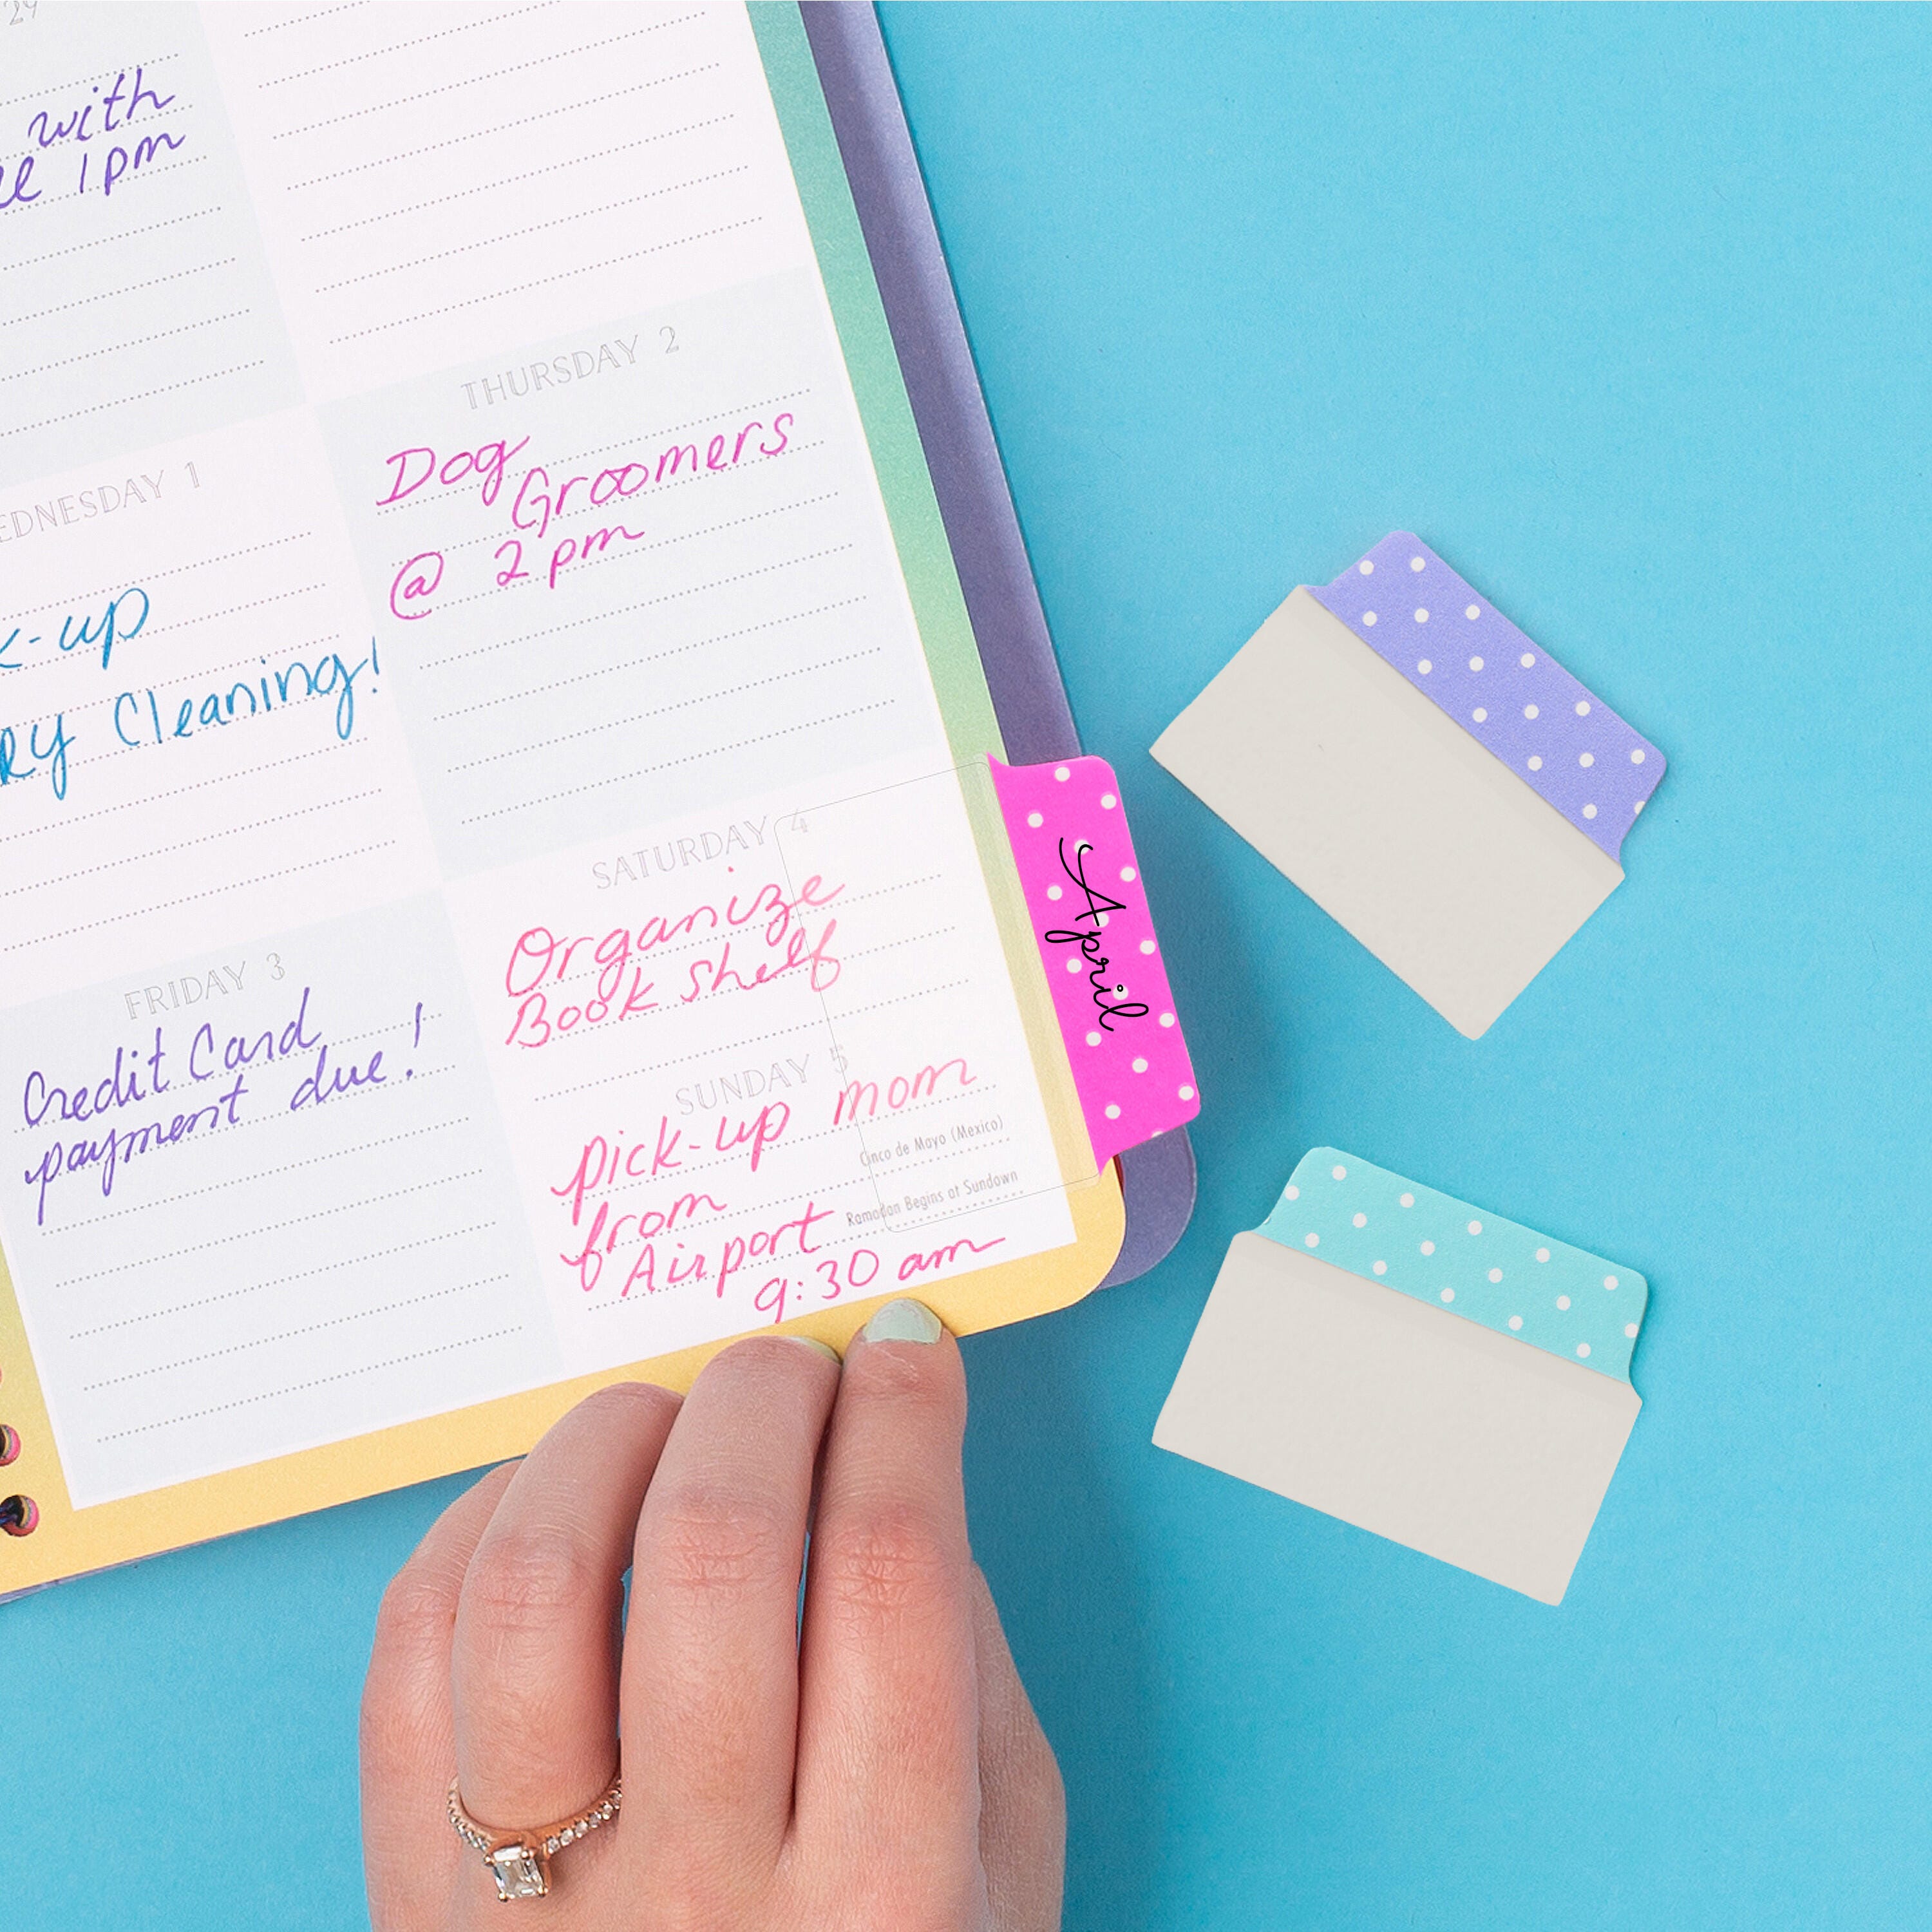 29
with
1pm
WEDNESDAY 1
-up
Cleaning!
THURSDAY 2
Dog
Groomers
@ 2pm
FRIDAY 3
Credit Card
payment due!
SATURDAY 4
Organize
Book shelf
SUNDAY 5
pick-up mom
from
Airport
9:30 am
Cinco de Mayo (Mexico)
Ramadan Begins at Sundown
April